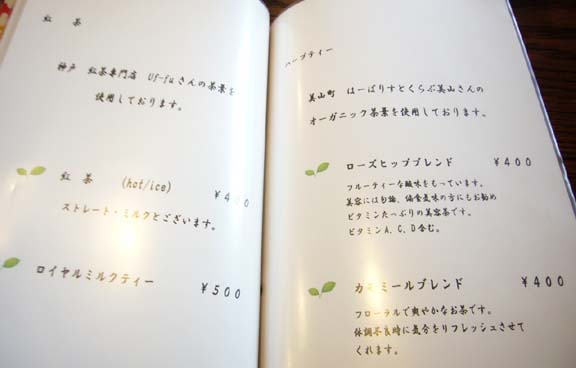 紅 茶
神戸 紅茶専門店 Uf-fuさんの茶葉を
使用しております。
紅 茶 (hot/ice) ¥400
ストレート・ミルクとございます。
ロイヤルミルクティー ¥500
ハーブティー
美山町 はーばりすとくらぶ美山さんの
オーガニック茶葉を使用しております。
ローズヒップブレンド ¥400
フルーティーな酸味をもっています。
美容には勿論、偏食気味の方にもお勧め
ビタミンたっぷりの美容茶です。
ビタミンA,C,D含む。
カモミールブレンド ¥400
フローラルで爽やかなお茶です。
体調不良時に気分をリフレッシュさせて
くれます。